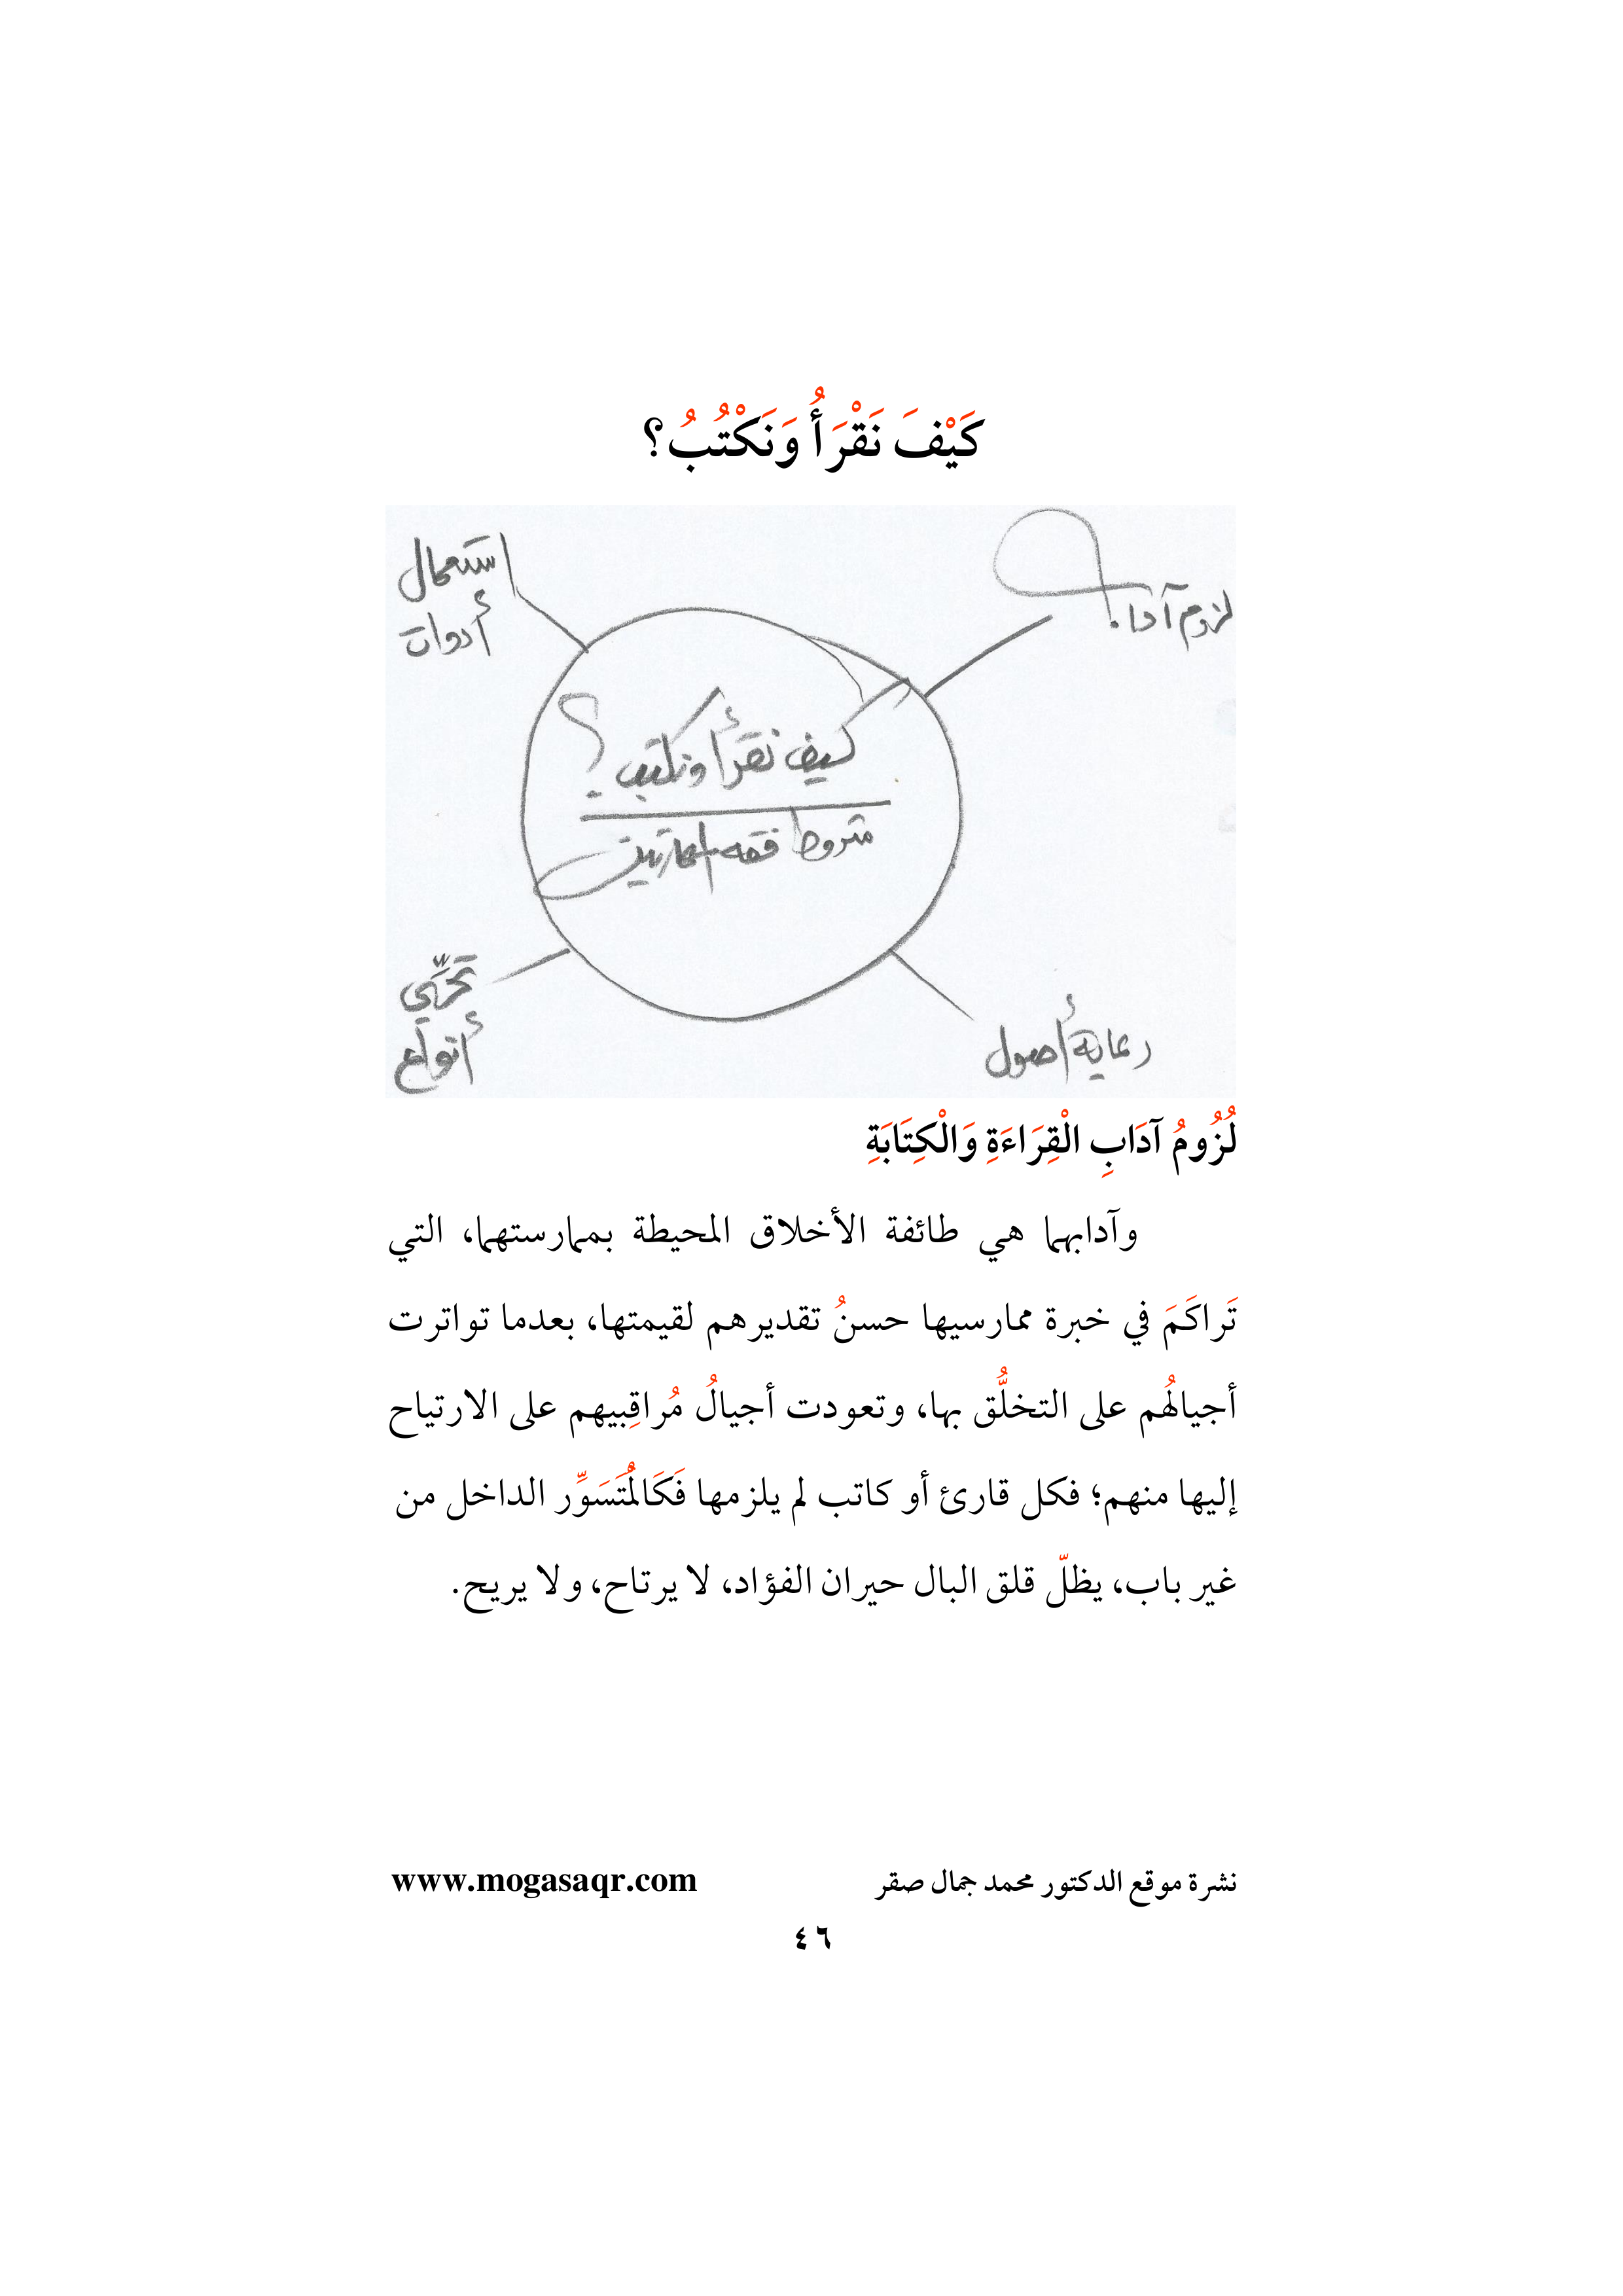 كَيْفَ نَقْرَأُ وَنَكْتُبُ؟
لزوم آداب
استعمال
أدوات
كيف نقرأ ونكتب؟
شروط فقه المهارتين
تحرّي
أنواع
رعاية أصول
لُزُومُ آدَابِ الْقِرَاءَةِ وَالْكِتَابَةِ
وآدابهما هي طائفة الأخلاق المحيطة بممارستهما، التي
تَراكَمَ في خبرة ممارسيها حسنُ تقديرهم لقيمتها، بعدما تواترت
أجيالُهم على التخلُّق بها، وتعودت أجيالُ مُراقِبيهم على الارتياح
إليها منهم؛ فكل قارئ أو كاتب لم يلزمها فَكَالمُتَسَوِّر الداخل من
غير باب، يظلّ قلق البال حيران الفؤاد، لا يرتاح، ولا يريح.
نشرة موقع الدكتور محمد جمال صقر www.mogasaqr.com
٤٦